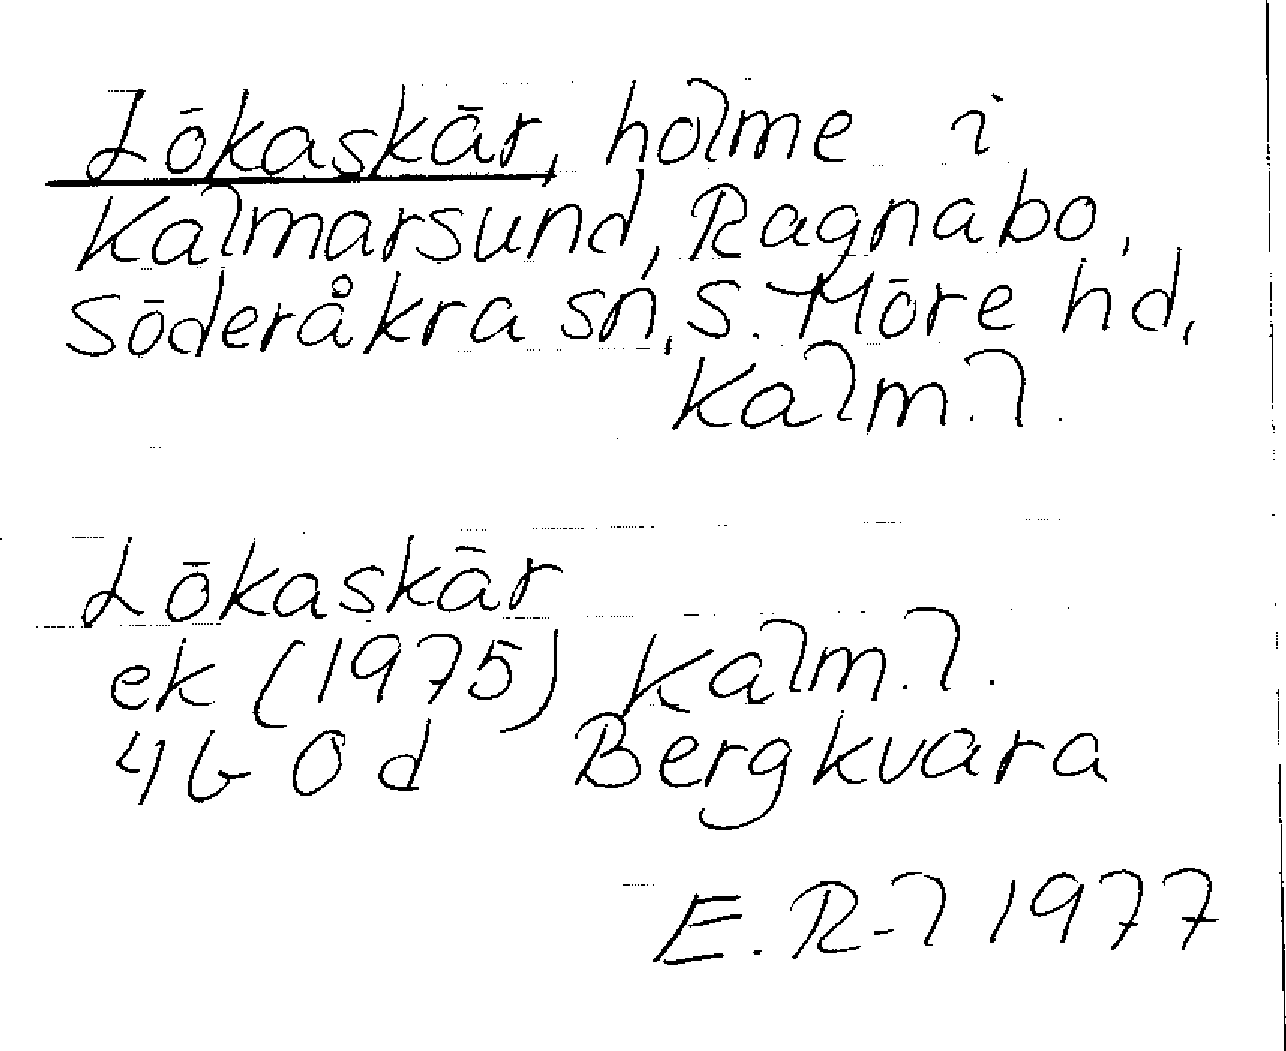 Lökaskär, holme i
Kalmarsund, Ragnabo,
Söderåkra sn, S. Möre hd,
Kalm. l.
Lökaskär
ek (1975) Kalm. l.
4G 0d Bergkvara
E. R-l 1977